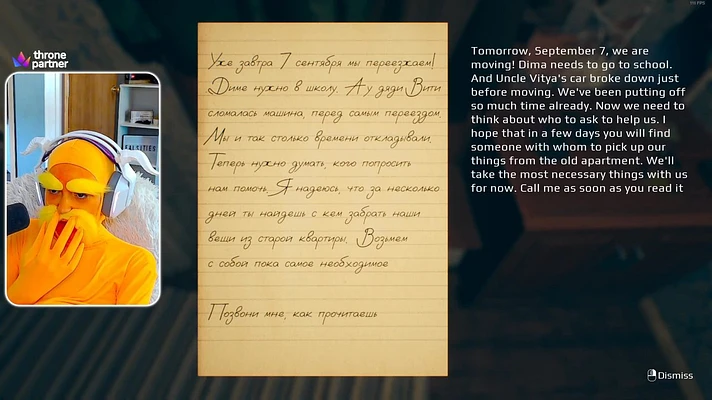 79 FPS
throne
partner
Уже завтра 7 сентября мы переезжаем!
Диме нужно в школу. А у дяди Вити
сломалась машина, перед самым переездом.
Мы и так столько времени откладывали.
Теперь нужно думать, кого попросить
нам помочь. Я надеюсь, что за несколько
дней ты найдешь с кем забрать наши
вещи из старой квартиры. Возьмем
с собой пока самое необходимое
Позвони мне, как прочитаешь
Tomorrow, September 7, we are
moving! Dima needs to go to school.
And Uncle Vitya's car broke down just
before moving. We've been putting off
so much time already. Now we need to
think about who to ask to help us. I
hope that in a few days you will find
someone with whom to pick up our
things from the old apartment. We'll
take the most necessary things with us
for now. Call me as soon as you read it
Dismiss